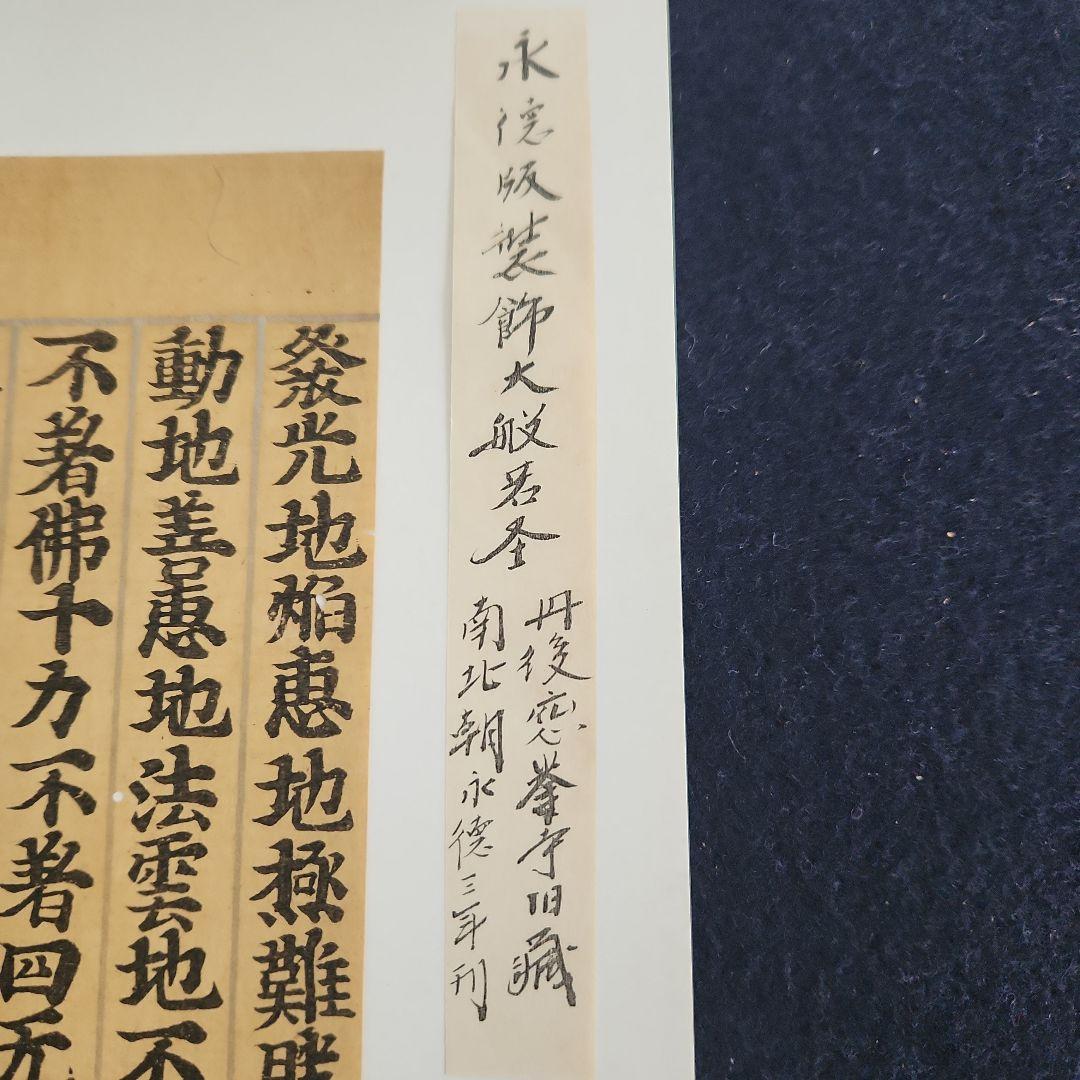 永德版装飾大般若圣
丹後恋峯寺旧藏
南北朝永德三年刊
發光地焰惠地極難勝
動地善惠地法雲地不
不著佛十力不著四无